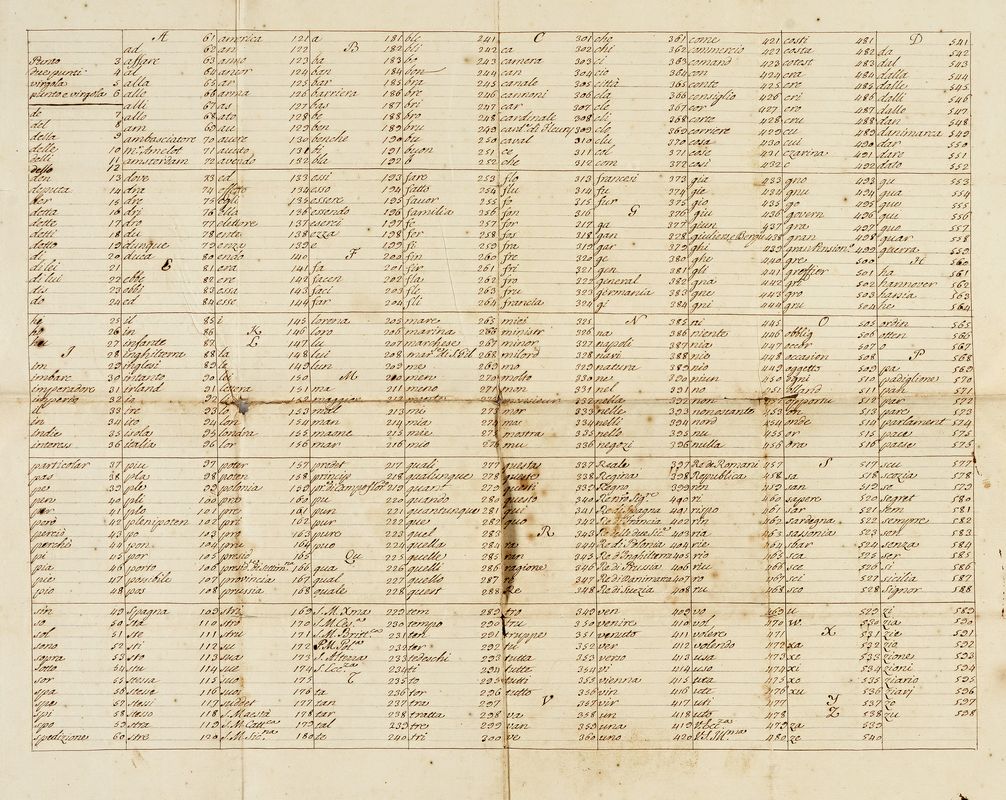 A 61 america 121 a 181 ble 241 C 301 che 361 come 421 costi 481 D 541
ad 62 an 122 B 182 bli 242 ca 302 chi 362 commercio 422 costa 482 da 542
Punto 3 affare 63 anno 123 ba 183 bo 243 camera 303 ci 363 comand 423 cotest 483 dal 543
due punti 4 al 64 anor 124 ban 184 bon 244 can 304 cio 364 con 424 cra 484 dalla 544
virgola 5 alla 65 ar 125 bar 185 bra 245 canale 305 città 365 conte 425 cre 485 dalle 545
punto e virgola 6 alle 66 arma 126 barriera 186 bre 246 cannoni 306 cla 366 consiglio 426 cri 486 dalli 546
alli 67 as 127 bas 187 bri 247 car 307 cle 367 cor 427 cro 487 dallo 547
de 7 allo 68 ato 128 be 188 bro 248 cardinale 308 cli 368 corte 428 cru 488 dan 548
del 8 am 69 au 129 ben 189 bru 249 card. di Fleury 309 clo 369 corriere 429 cu 489 danimarca 549
della 9 ambasciatore 70 aure 130 benche 190 bu 250 caval 310 clu 370 cosa 430 cui 490 dar 550
delle 10 amelot 71 audo 131 bi 191 buon 251 ce 311 col 371 cose 431 czarina 491 dare 551
delli 11 amsterdam 72 avendo 132 bla 192 b 252 che 312 com 372 cosi 432 c 492 dato 552
dello 12
den 13 dove 73 ed 133 essi 193 fare 253 flo 313 francesi 373 gia 433 gno 493 gu 553
deputa 14 dra 74 effetto 134 esso 194 fatto 254 flu 314 fu 374 gie 434 gnu 494 gua 554
der 15 dre 75 egli 135 essere 195 favor 255 fo 315 fur 375 gio 435 go 495 gue 555
detta 16 dri 76 elia 136 essendo 196 familia 256 fon 316 G 376 giu 436 govern 496 gui 556
dette 17 dro 77 elettore 137 eserci 197 fe 257 for 317 ga 377 giun 437 gra 497 guo 557
detti 18 du 78 enta 138 ezza 198 fer 258 fos 318 gan 378 438 gran 498 guar 558
detto 19 dunque 79 enza 139 e 199 fi 259 fra 319 gar 379 ghi 439 gran Pension. 499 guerra 559
di 20 duca 80 endo 140 F 200 fin 260 fre 320 ge 380 gho 440 gre 500 H 560
di lei 21 E 81 era 141 fa 201 fir 261 fri 321 gen 381 gli 441 greffier 501 ha 561
di lui 22 ebbe 82 ere 142 facen 202 fla 262 fro 322 general 382 gna 442 gri 502 hannover 562
dis 23 ebbi 83 essa 143 faci 203 fle 263 fru 323 germania 383 gne 443 gro 503 hassia 563
do 24 ed 84 esse 144 far 204 fli 264 francia 324 gi 384 gni 444 gru 504 he 564
hi 25 il 85 i 145 lorena 205 mare 265 miei 325 N 385 ni 445 O 505 ordin 565
ho 26 in 86 K 146 loro 206 marina 266 ministr 326 na 386 niente 446 obblig 506 otten 566
hu 27 infante 87 L 147 lu 207 marchese 267 minor 327 napoli 387 nia 447 occor 507 o 567
I 28 inghilterra 88 la 148 lui 208 268 milord 328 nari 388 nio 448 occasion 508 P 568
im 29 inglesi 89 le 149 lun 209 me 269 mo 329 natura 389 nio 449 oggetto 509 pa 569
imbarc 30 intanto 90 150 M 210 men 270 molto 330 ne 390 niun 450 ogni 510 padiglione 570
imperadore 31 irland 91 lettera 151 ma 211 meno 271 mon 331 nel 391 no 451 olland 511 pah 571
importa 32 is 92 li 152 maggior 212 272 332 nella 392 non 452 opportu 512 par 572
il 33 ire 93 lo 153 mall 213 mi 273 mor 333 nelle 393 nonostante 453 on 513 pare 573
in 34 ito 94 lon 154 man 214 mia 274 mos 334 nelli 394 nor 454 onde 514 parlament 574
Indie 35 isola 95 londra 155 maone 215 mie 275 mostra 335 nello 395 nu 455 or 515 pace 575
interess 36 italia 96 lor 156 mar 216 mio 276 mu 336 negozi 396 nulla 456 ora 516 paese 576
particolar 37 piu 97 poter 157 predet 217 quali 277 questa 337 Reale 397 Re di Romani 457 S 517 scu 577
pas 38 pla 98 poten 158 princip 218 qualunque 278 queste 338 Regina 398 Republica 458 sa 518 scozia 578
pe 39 ple 99 polonia 159 219 quan 279 questi 339 Regno 399 re 459 san 519 se 579
pen 40 pli 100 pra 160 pu 220 quando 280 questo 340 400 ri 460 sapere 520 segret 580
per 41 plo 101 pre 161 pun 221 quantunque 281 qui 341 Re di Spagna 401 rispo 461 sar 521 sem 581
però 42 plenipoten 102 pri 162 pur 222 que 282 quo 342 Re di Francia 402 rin 462 sardegna 522 sempre 582
perciò 43 po 103 pro 163 pure 223 quel 283 R 343 Re delle due Sic. 403 rta 463 sassonia 523 sen 583
perchè 44 pon 104 pru 164 puo 224 quella 284 ra 344 Re di Polonia 404 rie 464 sbar 524 senza 584
pi 45 por 105 presid 165 Qu 225 quelle 285 ran 345 Re d'Inghilterra 405 rio 465 sca 525 ser 585
pia 46 porto 106 166 qua 226 quelli 286 ragione 346 Re di Prussia 406 riu 466 sce 526 si 586
pie 47 possibile 107 provincia 167 qual 227 quello 287 rb 347 Re di Danimarca 407 ro 467 sci 527 sicilia 587
pio 48 pos 108 pruma 168 quale 228 quest 288 Re 348 Re di Suezia 408 ru 468 sco 528 Signor 588
sin 49 Spagna 109 stri 169 S.M.Xma 229 tem 289 tro 349 ven 409 vo 469 u 529 zi 589
so 50 sta 110 stro 170 S.M.Ces.ea 230 tempo 290 tru 350 venire 410 vol 470 W. 530 zia 590
sol 51 ste 111 stru 171 S.M.Britt.ca 231 ten 291 truppe 351 venuto 411 volere 471 X 531 zie 591
sono 52 sti 112 su 172 P.M.Pol.ca 232 ter 292 tu 352 ver 412 volendo 472 xa 532 zio 592
sopra 53 sto 113 sua 173 S.Altezza 233 tedeschi 293 tutta 353 verso 413 usa 473 xe 533 ziones 593
sotto 54 stu 114 sue 174 S.Ecc.za 234 ti 294 tutte 354 vi 414 uso 474 xi 534 zioni 594
sor 55 stessa 115 suo 175 T 235 to 295 tutti 355 vienna 415 uta 475 xo 535 ziario 595
spa 56 stesse 116 suoi 176 ta 236 tor 296 tutto 356 vin 416 ute 476 xu 536 ziarj 596
spe 57 stessi 117 suddet 177 tan 237 tra 297 V 357 vir 417 uti 477 Y 537 zo 597
spi 58 stesso 118 S.Maestà 178 tar 238 tratta 298 va 358 un 418 uto 478 Z 538 zu 598
spo 59 stra 119 S.M.Catt.ca 179 tal 239 tre 299 van 359 una 419 V.Ecc.za 479 za 539
spedizione 60 stre 120 S.M.Sic.na 180 te 240 tri 300 ve 360 uno 420 V.S.Ill.ma 480 ze 540